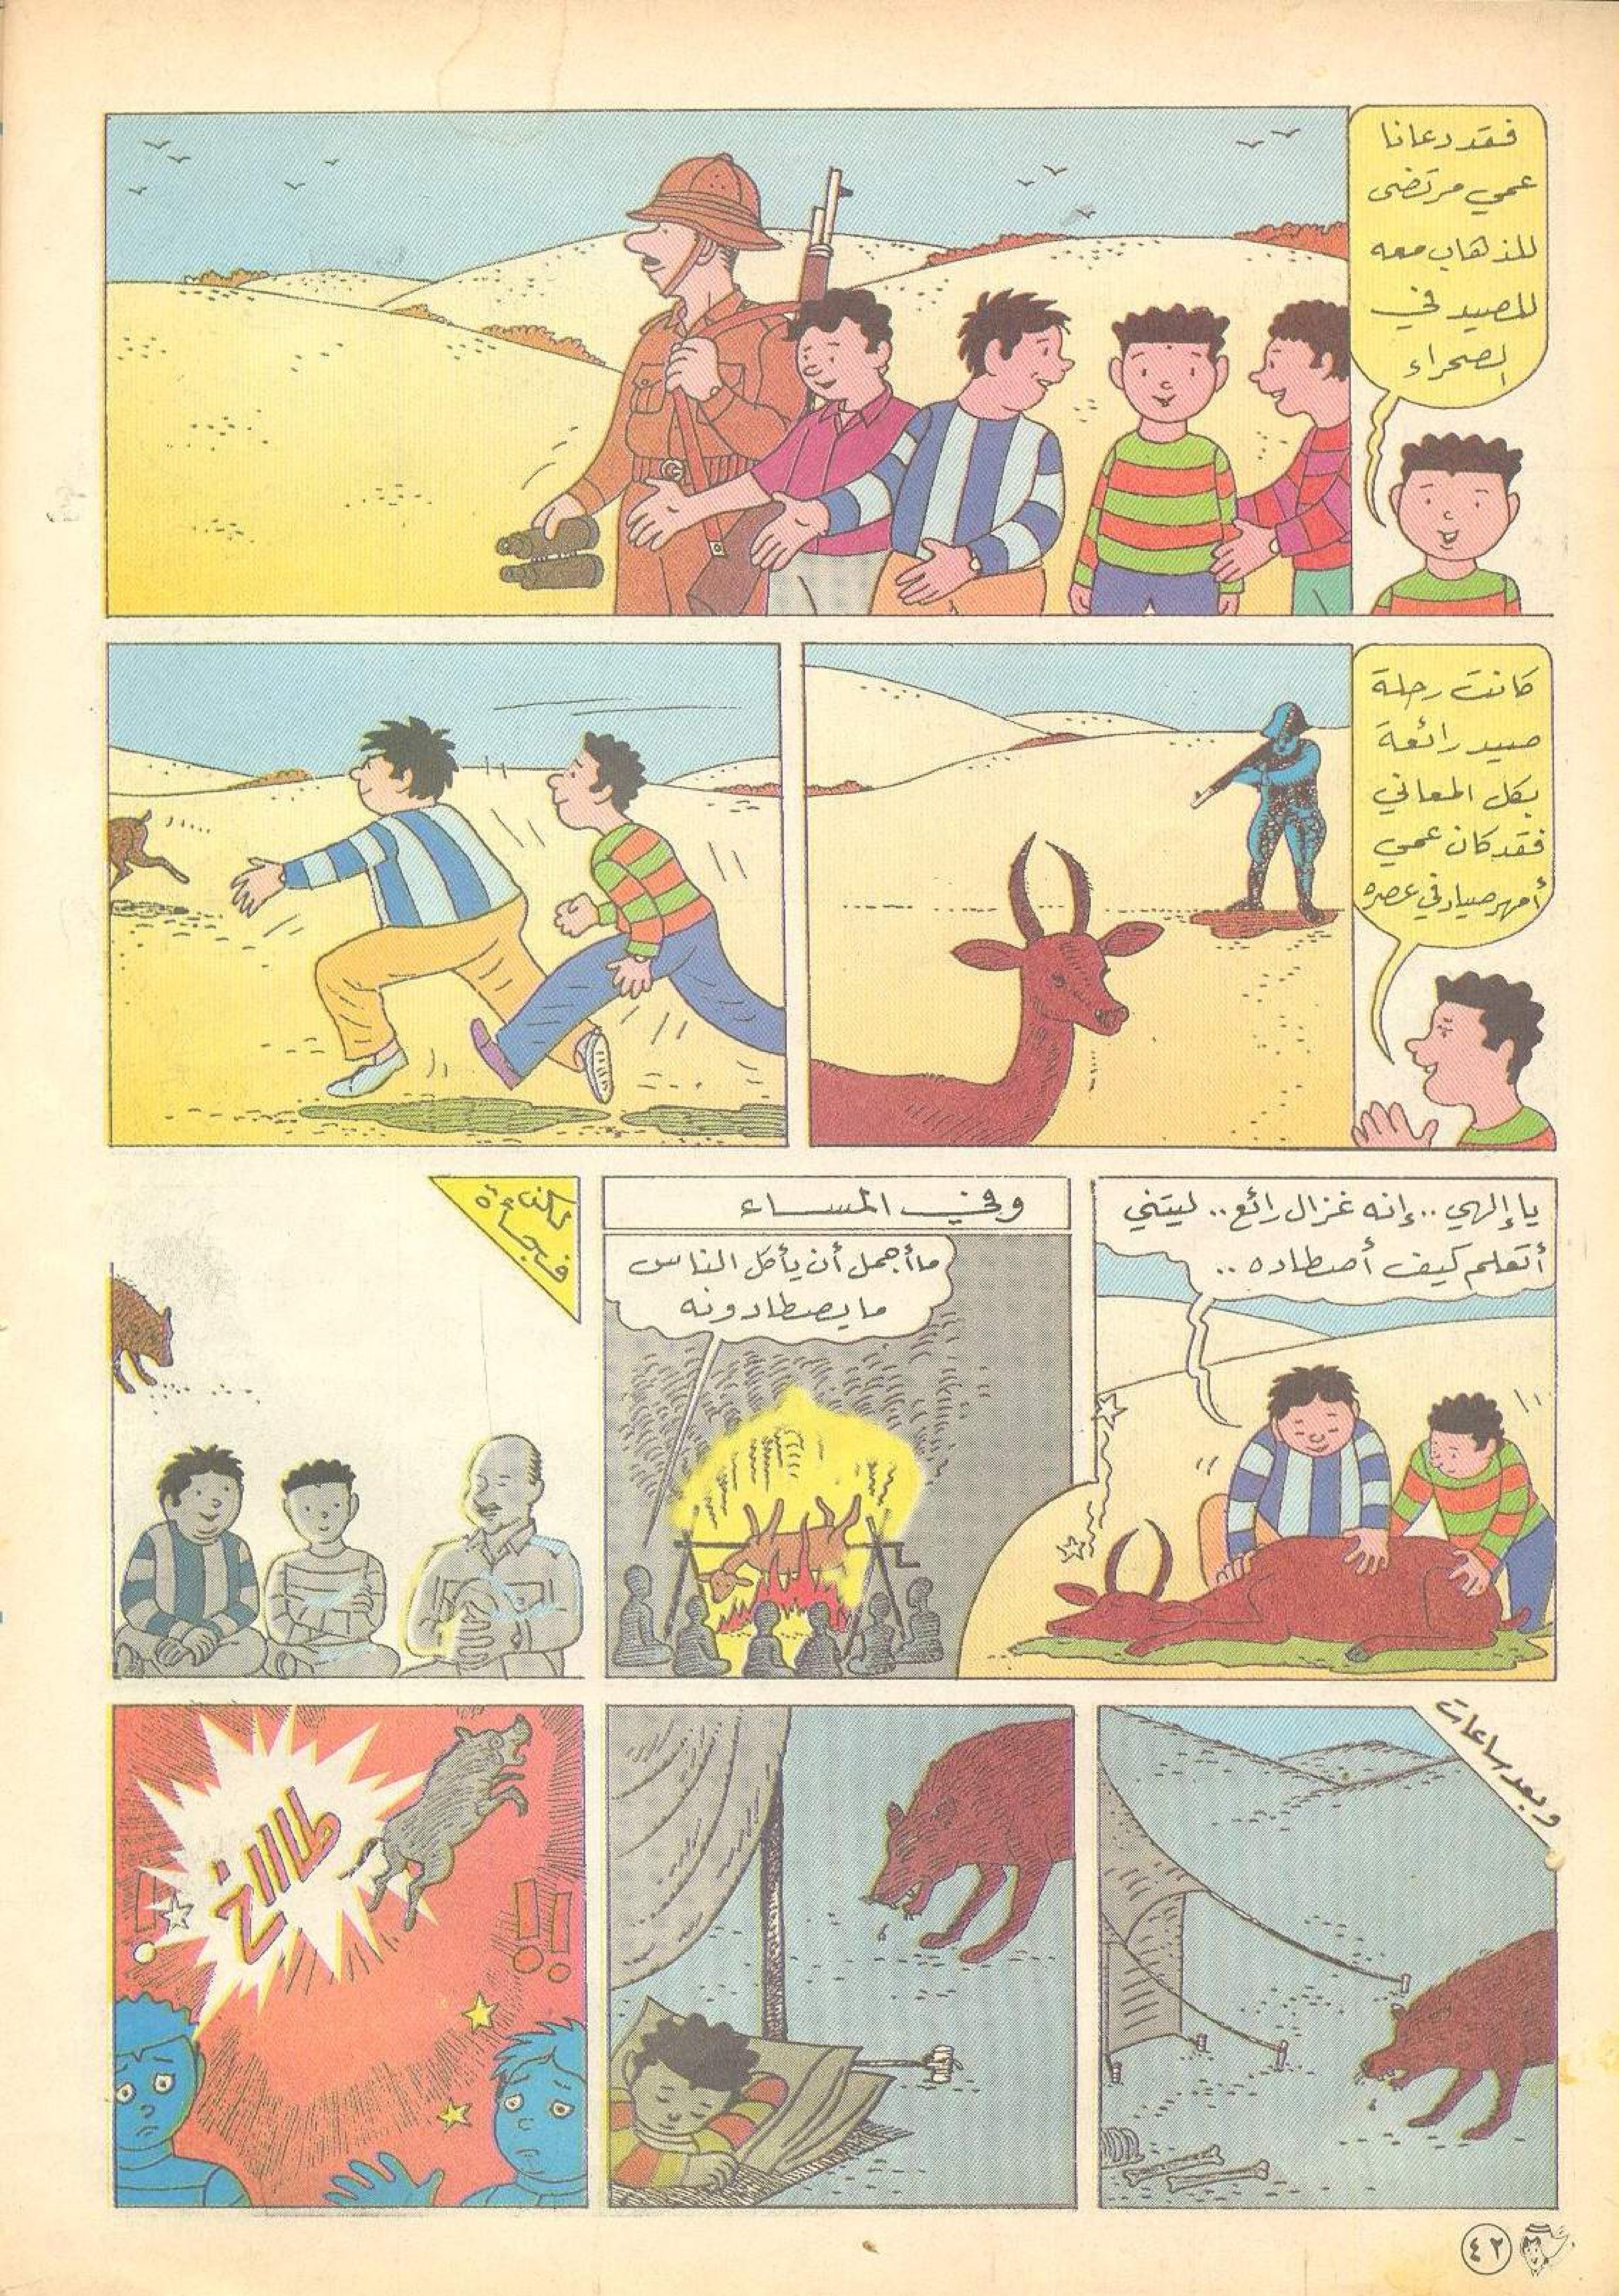 فقد دعانا
عمي مرتضى
للذهاب معه
للصيد في
الصحراء
كانت رحلة
صيد رائعة
بكل المعاني
فقد كان عمي
أمهر صياد في عصره
يا إلهي .. إنه غزال رائع .. ليتني
أتعلم كيف أصطاده ..
وفي المساء
ما أجمل أن يأكل الناس
ما يصطادونه
ولكن
فجأة
وبعد ساعات
طاااخ
!!
!!
٤٢